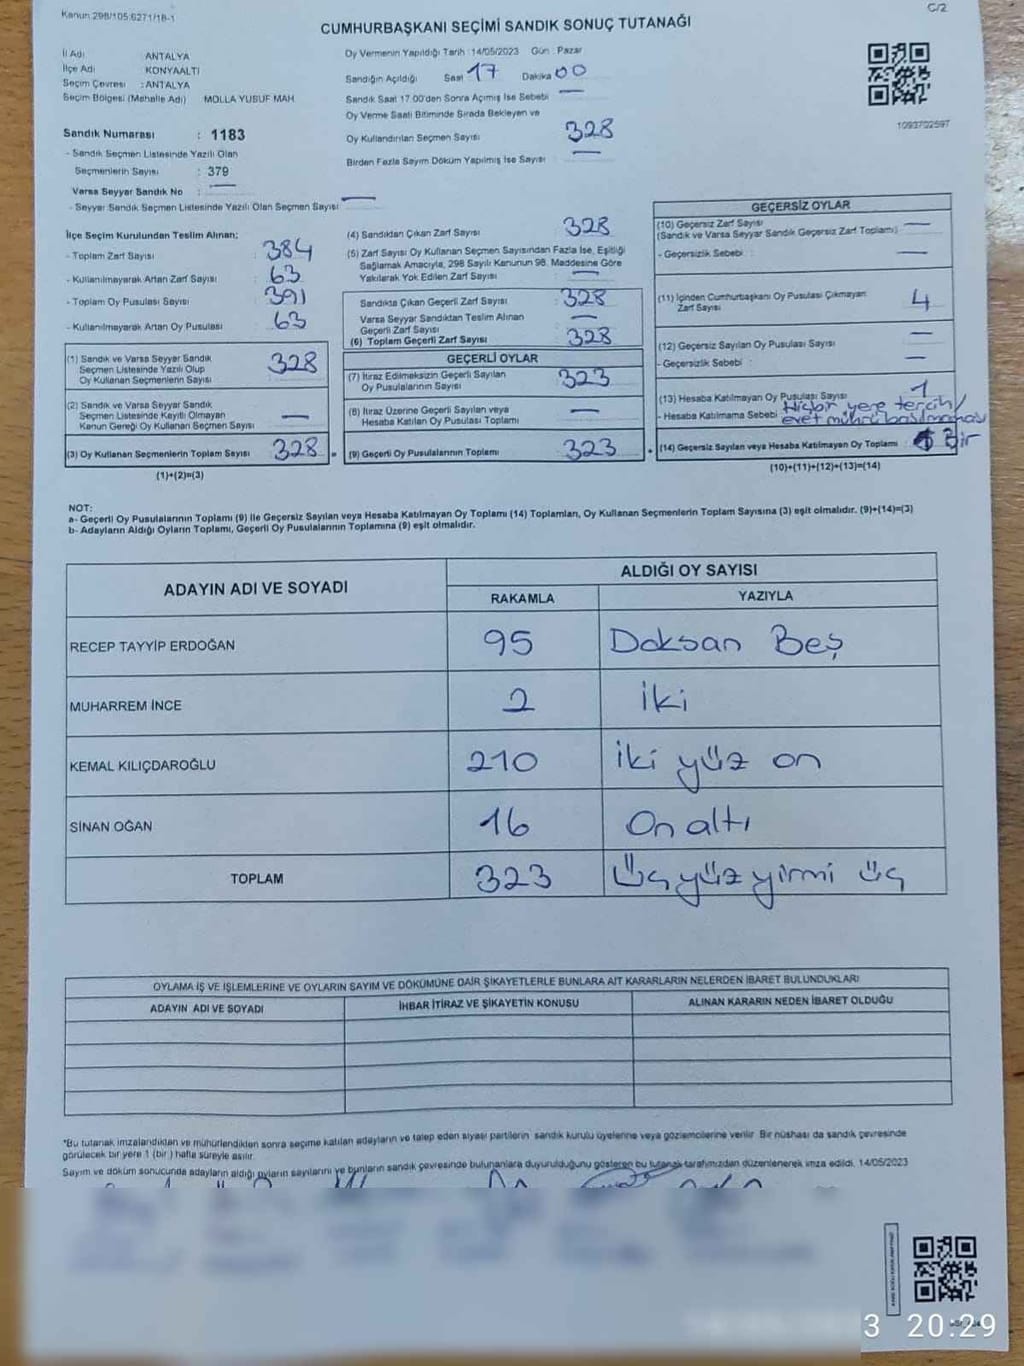 Kanun:298/105:6271/18-1
C/2
CUMHURBAŞKANI SEÇİMİ SANDIK SONUÇ TUTANAĞI
İl Adı ANTALYA
İlçe Adı KONYAALTI
Seçim Çevresi : ANTALYA
Seçim Bölgesi (Mahalle Adı) MOLLA YUSUF MAH
Sandık Numarası : 1183
- Sandık Seçmen Listesinde Yazılı Olan
Seçmenlerin Sayısı : 379
Varsa Seyyar Sandık No :
- Seyyar Sandık Seçmen Listesinde Yazılı Olan Seçmen Sayısı
Oy Vermenin Yapıldığı Tarih :14/05/2023 Gün : Pazar
Sandığın Açıldığı Saat 17 Dakika 00
Sandık Saat 17.00'den Sonra Açımış İse Sebebi
Oy Verme Saati Bitiminde Sırada Bekleyen ve
Oy Kullandırılan Seçmen Sayısı 328
Birden Fazla Sayım Döküm Yapılmış İse Sayısı
1093702597
İlçe Seçim Kurulundan Teslim Alınan;
- Toplam Zarf Sayısı : 384
- Kullanılmayarak Artan Zarf Sayısı : 63
- Toplam Oy Pusulası Sayısı : 391
- Kullanılmayarak Artan Oy Pusulası : 63
(1) Sandık ve Varsa Seyyar Sandık
Seçmen Listesinde Yazılı Olup
Oy Kullanan Seçmenlerin Sayısı 328
(2) Sandık ve Varsa Seyyar Sandık
Seçmen Listesinde Kayıtlı Olmayan
Kanun Gereği Oy Kullanan Seçmen Sayısı
(3) Oy Kullanan Seçmenlerin Toplam Sayısı 328
(1)+(2)=(3)
(4) Sandıktan Çıkan Zarf Sayısı 328
(5) Zarf Sayısı Oy Kullanan Seçmen Sayısından Fazla İse, Eşitliği
Sağlamak Amacıyla, 298 Sayılı Kanunun 98. Maddesine Göre
Yakılarak Yok Edilen Zarf Sayısı
Sandıkta Çıkan Geçerli Zarf Sayısı : 328
Varsa Seyyar Sandıktan Teslim Alınan
Geçerli Zarf Sayısı
(6) Toplam Geçerli Zarf Sayısı 328
GEÇERLİ OYLAR
(7) İtiraz Edilmeksizin Geçerli Sayılan
Oy Pusulalarının Sayısı 323
(8) İtiraz Üzerine Geçerli Sayılan veya
Hesaba Katılan Oy Pusulası Toplamı
(9) Geçerli Oy Pusulalarının Toplamı 323
GEÇERSİZ OYLAR
(10) Geçersiz Zarf Sayısı
(Sandık ve Varsa Seyyar Sandık Geçersiz Zarf Toplamı)
- Geçersizlik Sebebi :
(11) İçinden Cumhurbaşkanı Oy Pusulası Çıkmayan
Zarf Sayısı 4
(12) Geçersiz Sayılan Oy Pusulası Sayısı
- Geçersizlik Sebebi :
(13) Hesaba Katılmayan Oy Pusulası Sayısı 1
- Hesaba Katılmama Sebebi : Hiçbir yere tercih/
evet mührü basılmaması
(14) Geçersiz Sayılan veya Hesaba Katılmayan Oy Toplamı Bir
(10)+(11)+(12)+(13)=(14)
NOT:
a- Geçerli Oy Pusulalarının Toplamı (9) ile Geçersiz Sayılan veya Hesaba Katılmayan Oy Toplamı (14) Toplamları, Oy Kullanan Seçmenlerin Toplam Sayısına (3) eşit olmalıdır. (9)+(14)=(3)
b- Adayların Aldığı Oyların Toplamı, Geçerli Oy Pusulalarının Toplamına (9) eşit olmalıdır.
ADAYIN ADI VE SOYADI ALDIĞI OY SAYISI
RAKAMLA YAZIYLA
RECEP TAYYİP ERDOĞAN 95 Doksan Beş
MUHARREM İNCE 2 İki
KEMAL KILIÇDAROĞLU 210 İki yüz on
SİNAN OĞAN 16 On altı
TOPLAM 323 Üç yüz yirmi üç
OYLAMA İŞ VE İŞLEMLERİNE VE OYLARIN SAYIM VE DÖKÜMÜNE DAİR ŞİKAYETLERLE BUNLARA AİT KARARLARIN NELERDEN İBARET BULUNDUKLARI
ADAYIN ADI VE SOYADI İHBAR İTİRAZ VE ŞİKAYETİN KONUSU ALINAN KARARIN NEDEN İBARET OLDUĞU
*Bu tutanak imzalandıktan ve mühürlendikten sonra seçime katılan adayların ve talep eden siyasi partilerin sandık kurulu üyelerine veya gözlemcilerine verilir. Bir nüshası da sandık çevresinde
görülecek bir yere 1 (bir ) hafta süreyle asılır.
Sayım ve döküm sonucunda adayların aldığı oyların sayılarını ve bunların sandık çevresinde bulunanlara duyurulduğunu gösteren bu tutanak tarafımızdan düzenlenerek imza edildi. 14/05/2023
3 20:29